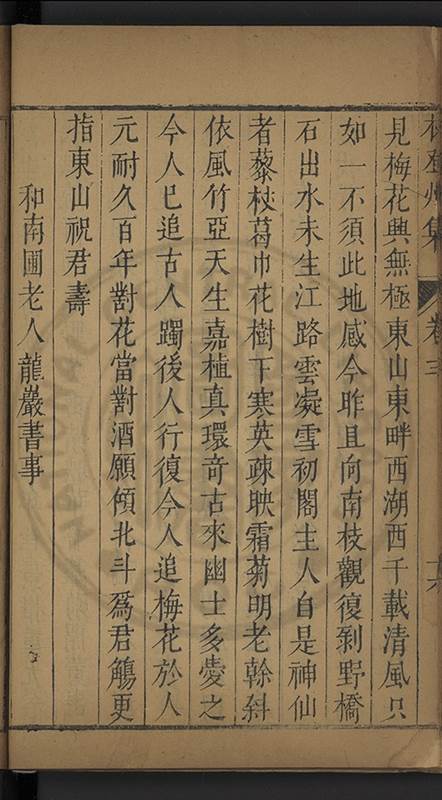 見梅花興無極東山東畔西湖西千載清風只
如一不須此地感今昨且向南枝觀復剝野橋
石出水未生江路雲凝雪初閣主人自是神仙
者藜杖葛巾花樹下寒英疎映霜菊明老榦斜
依風竹亞天生嘉植真環奇古來幽士多愛之
今人已追古人躅後人行復今人追梅花於人
元耐久百年對花當對酒願傾北斗爲君觴更
指東山祝君壽
和南圃老人龍巖書事